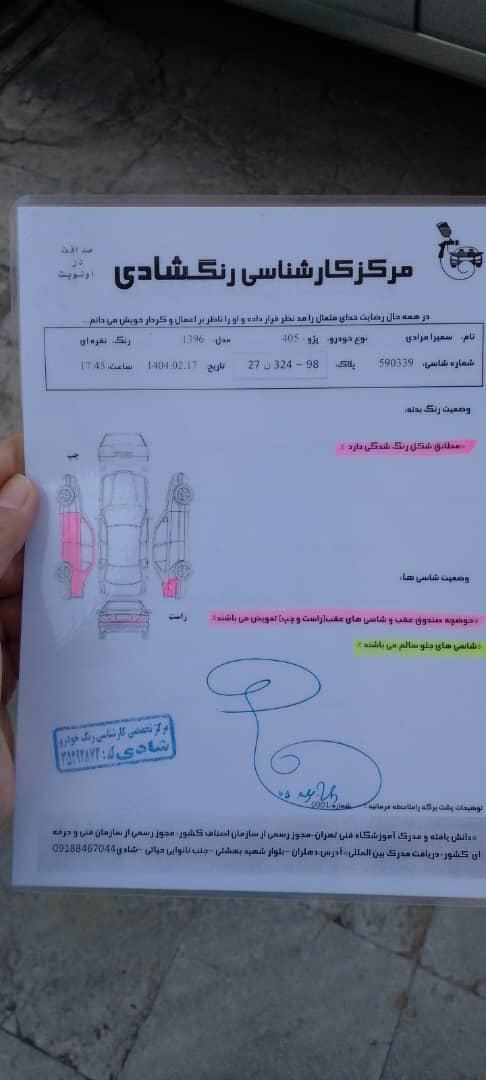 صداقت
در
اولویت
مرکز کارشناسی رنگ شادی
در همه حال رضایت خدای متعال را مد نظر قرار داده و او را ناظر بر اعمال و کردار خویش می دانم...
نام: سمیرا مرادی نوع خودرو: پژو - 405 مدل: 1396 رنگ: نقره ای
شماره شاسی: 590339 پلاک: 98 – 324 ن 27 تاریخ: 1404.02.17 ساعت: 17:45
وضعیت رنگ بدنه:
مطابق شکل رنگ شدگی دارد
چپ
راست
وضعیت شاسی ها:
حوضچه صندوق عقب و شاسی های عقب(راست و چپ) تعویض می باشند
شاسی های جلو سالم می باشند
مرکز تخصصی کارشناسی رنگ خودرو
شادی کد:
توضیحات پشت برگه را ملاحظه فرمائید شماره: 0001
دانش یافته و مدرک آموزشگاه فنی تهران-مجوز رسمی از سازمان اصناف کشور-مجوز رسمی از سازمان فنی و حرفه
ای کشور-دریافت مدرک بین المللی آدرس:دهلران –بلوار شهید بهشتی –جنب نانوایی حیاتی –شادی 09188467044